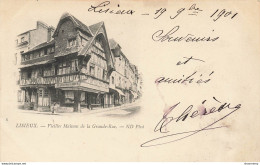 Lisieux, 19 9bre 1901
Souvenirs
et
amitiés
Thérèse
LISIEUX. - Vieilles Maisons de la Grande-Rue. - ND Phot